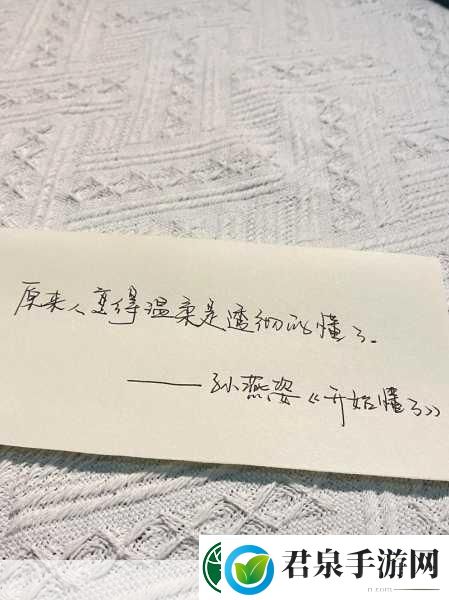 原来人变得温柔是透彻的懂了.
——孙燕姿《开始懂了》
君泉手游网